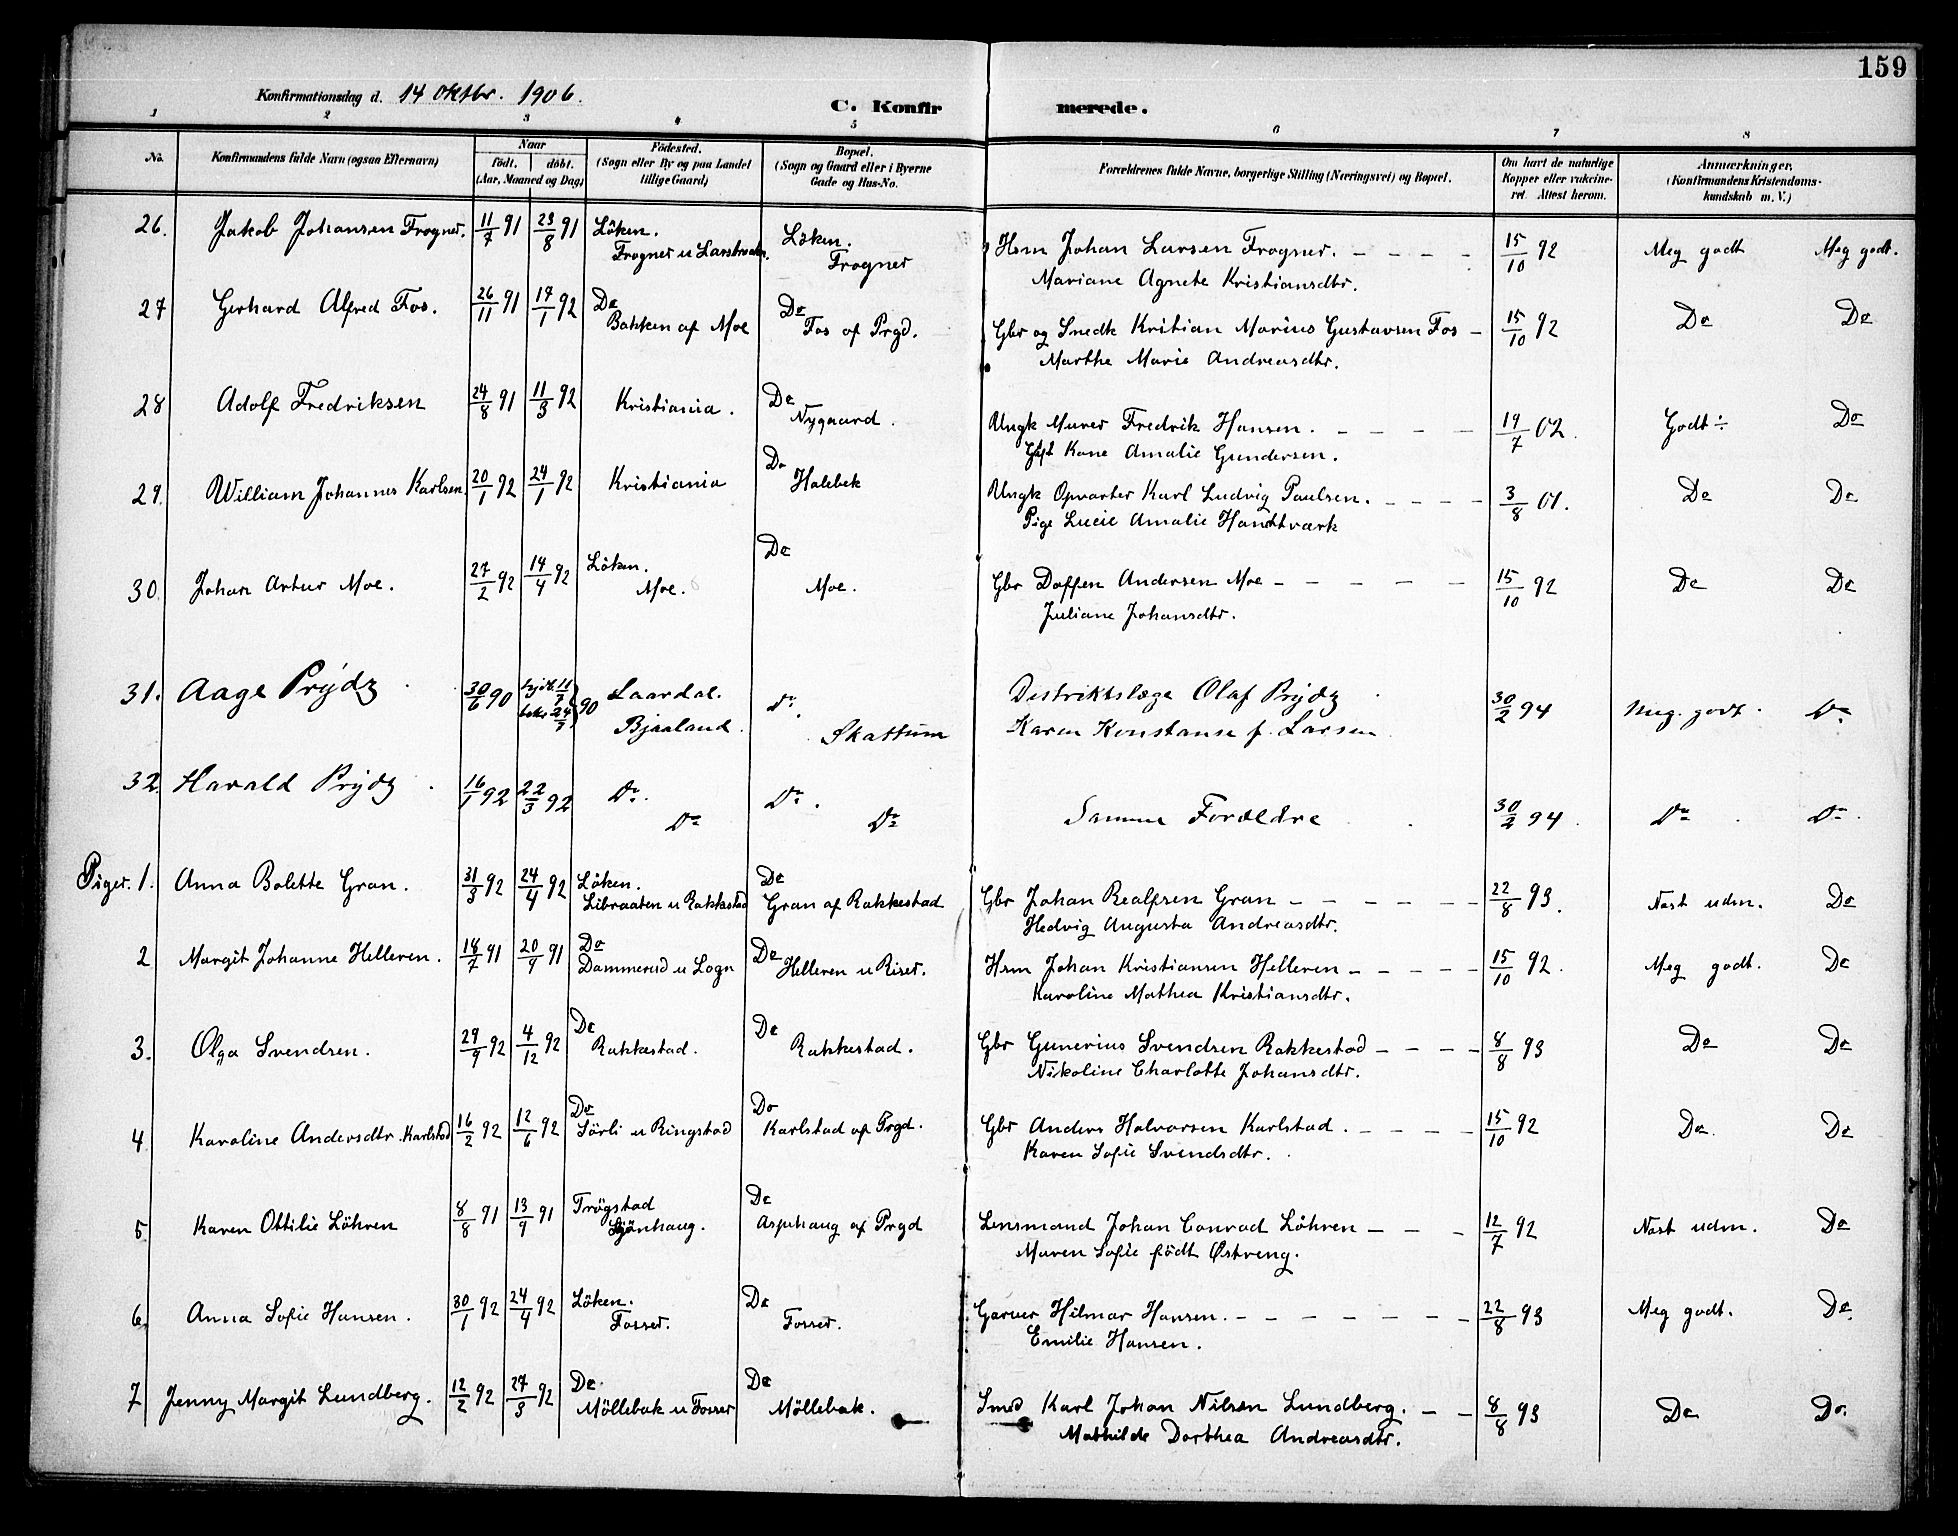 159
Konfirmationsdag d. 14 oktbr. 1906.
C. Konfirmerede.
1 2 3 4 5 6 7 8
No. Konfirmandens fulde Navn (ogsaa Efternavn) Naar født. døbt. (Aar, Maaned og Dag) Fødested. (Sogn eller By og paa Landet tillige Gaard) Bopæl. (Sogn og Gaard eller i Byerne Gade og Hus-No. Forældrenes fulde Navne, borgerlige Stilling (Næringsvei) og Bopæl. Om havt de naturlige Kopper eller vakcineret. Attest herom. Anmærkninger. (Konfirmandens Kristendomskundskab m. V.)
26. Jakob Johansen Frogner. 11/7 91 23/8 91 Löken. Löken. Hsm Johan Larsen Frogner. 15/10 92 Meg godt Meg godt.
Frogner u Frogner Mariane Agnete Kristiansdtr.
27 Gerhard Alfred Fos. 26/11 91 17/1 92 Do Do Gbr og Snedk Kritian Marius Gustavsen Fos 15/10 92 Do Do
Bakken af Moe Fos af Prgd. Marthe Marie Andreasdtr.
28 Adolf Fredriksen 24/8 91 11/3 92 Kristiania. Do Ungk Murer Fredrik Hansen. 19/7 02. Godt ÷ Do
Nygaard. Gift Kone Amalie Gundersen.
29. William Johannes Karlsen 20/1 92 24/1 92 Kristiania Do Halebek Ungk Opvarter Karl Ludvig Paulsen. 3/8 01. Do Do
Pige Lucie Amalie Handtværk
30. Johan Artur Moe. 27/2 92 14/4 92 Löken. Do Gbr Daffen Andersen Moe 15/10 92 Do Do
Moe. Moe. Juliane Johansdtr.
31. Aage Prydz 30/6 90 11/7 90 Laardal. Do. Distriktslæge Olaf Prydz 30/2 94 Meg. godt. Do
Bjaaland. Skattum Karen Konstanse f. Larsen
32. Harald Prydz. 16/1 92 22/3 92 Do. Do. Samme Forældre 30/2 94. Do Do.
Do Do
Piger. 1. Anna Bolette Gran. 31/3 92 24/4 92 Löken. Do Gbr Johan Realfsen Gran 22/8 93. Næst udm. Do
Libraaten u Rakkestad Gran af Rakkestad Hedvig Augusta Andreasdtr.
2 Margit Johanne Helleren. 18/7 91 20/9 91 Do Do Hsm Johan Kristiansen Helleren 15/10 92. Meg godt. Do
Dammerud u Logn Helleren u Riser. Karoline Mathea Kristiansdtr.
3. Olga Svendsen. 29/9 92 4/12 92 Do Do Gbr Gunerius Svendsen Rakkestad 8/8 93 Do Do
Rakkestad. Rakkestad. Nikoline Charlotte Johansdtr.
4 Karoline Andersdtr. Karlstad 16/2 92 12/6 92 Do Do Gbr Anders Halvorsen Karlstad. 15/10 92 Do. Do
Sörli u Ringstad Karlstad af Prgd. Karen Sofie Svendsdtr.
5 Karen Ottilie Löhren 8/8 91 13/9 91 Trögstad Do Lensmand Johan Conrad Löhren 12/7 92 Næst udm. Do
Sjönhaug. Asphaug af Prgd Maren Sofie födt Østreng.
6. Anna Sofie Hansen. 30/1 92 24/4 92 Löken. Do Garver Hilmar Hansen. 22/8 93 Meg godt. Do.
Fosser. Fosser. Emilie Hansen.
7 Jenny Margit Lundberg. 12/2 92 27/3 92 Do. Do Smed Karl Johan Nilsen Lundberg. 8/8 93 Do Do.
Möllebak u Fosser Möllebak. Mathilde Dorthea Andreasdtr.